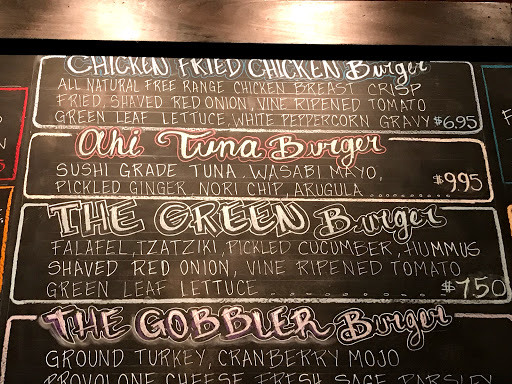 CHICKEN FRIED CHICKEN Burger
ALL NATURAL FREE RANGE CHICKEN BREAST CRISP
FRIED, SHAVED RED ONION, VINE RIPENED TOMATO
GREEN LEAF LETTUCE, WHITE PEPPERCORN GRAVY $6.95
Ahi Tuna Burger
SUSHI GRADE TUNA. WASABI MAYO,
PICKLED GINGER, NORI CHIP, ARUGULA ...... $9.95
THE GREEN Burger
FALAFEL, TZATZIKI, PICKLED CUCUMBER, HUMMUS
SHAVED RED ONION, VINE RIPENED TOMATO
GREEN LEAF LETTUCE .................. $7.50
THE GOBBLER Burger
GROUND TURKEY, CRANBERRY MOJO
PROVOLONE CHEESE FRESH SAGE PARSLEY